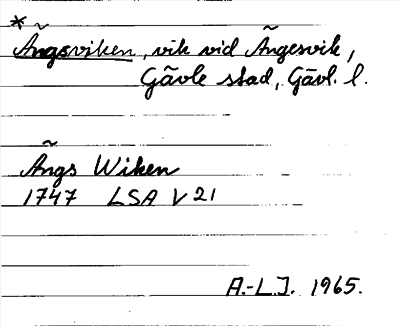 *
Ängsviken, vik vid Ängesvik,
Gävle stad, Gävl. l.
Ängs Wiken
1747 LSA V 21
A.-L.J. 1965.